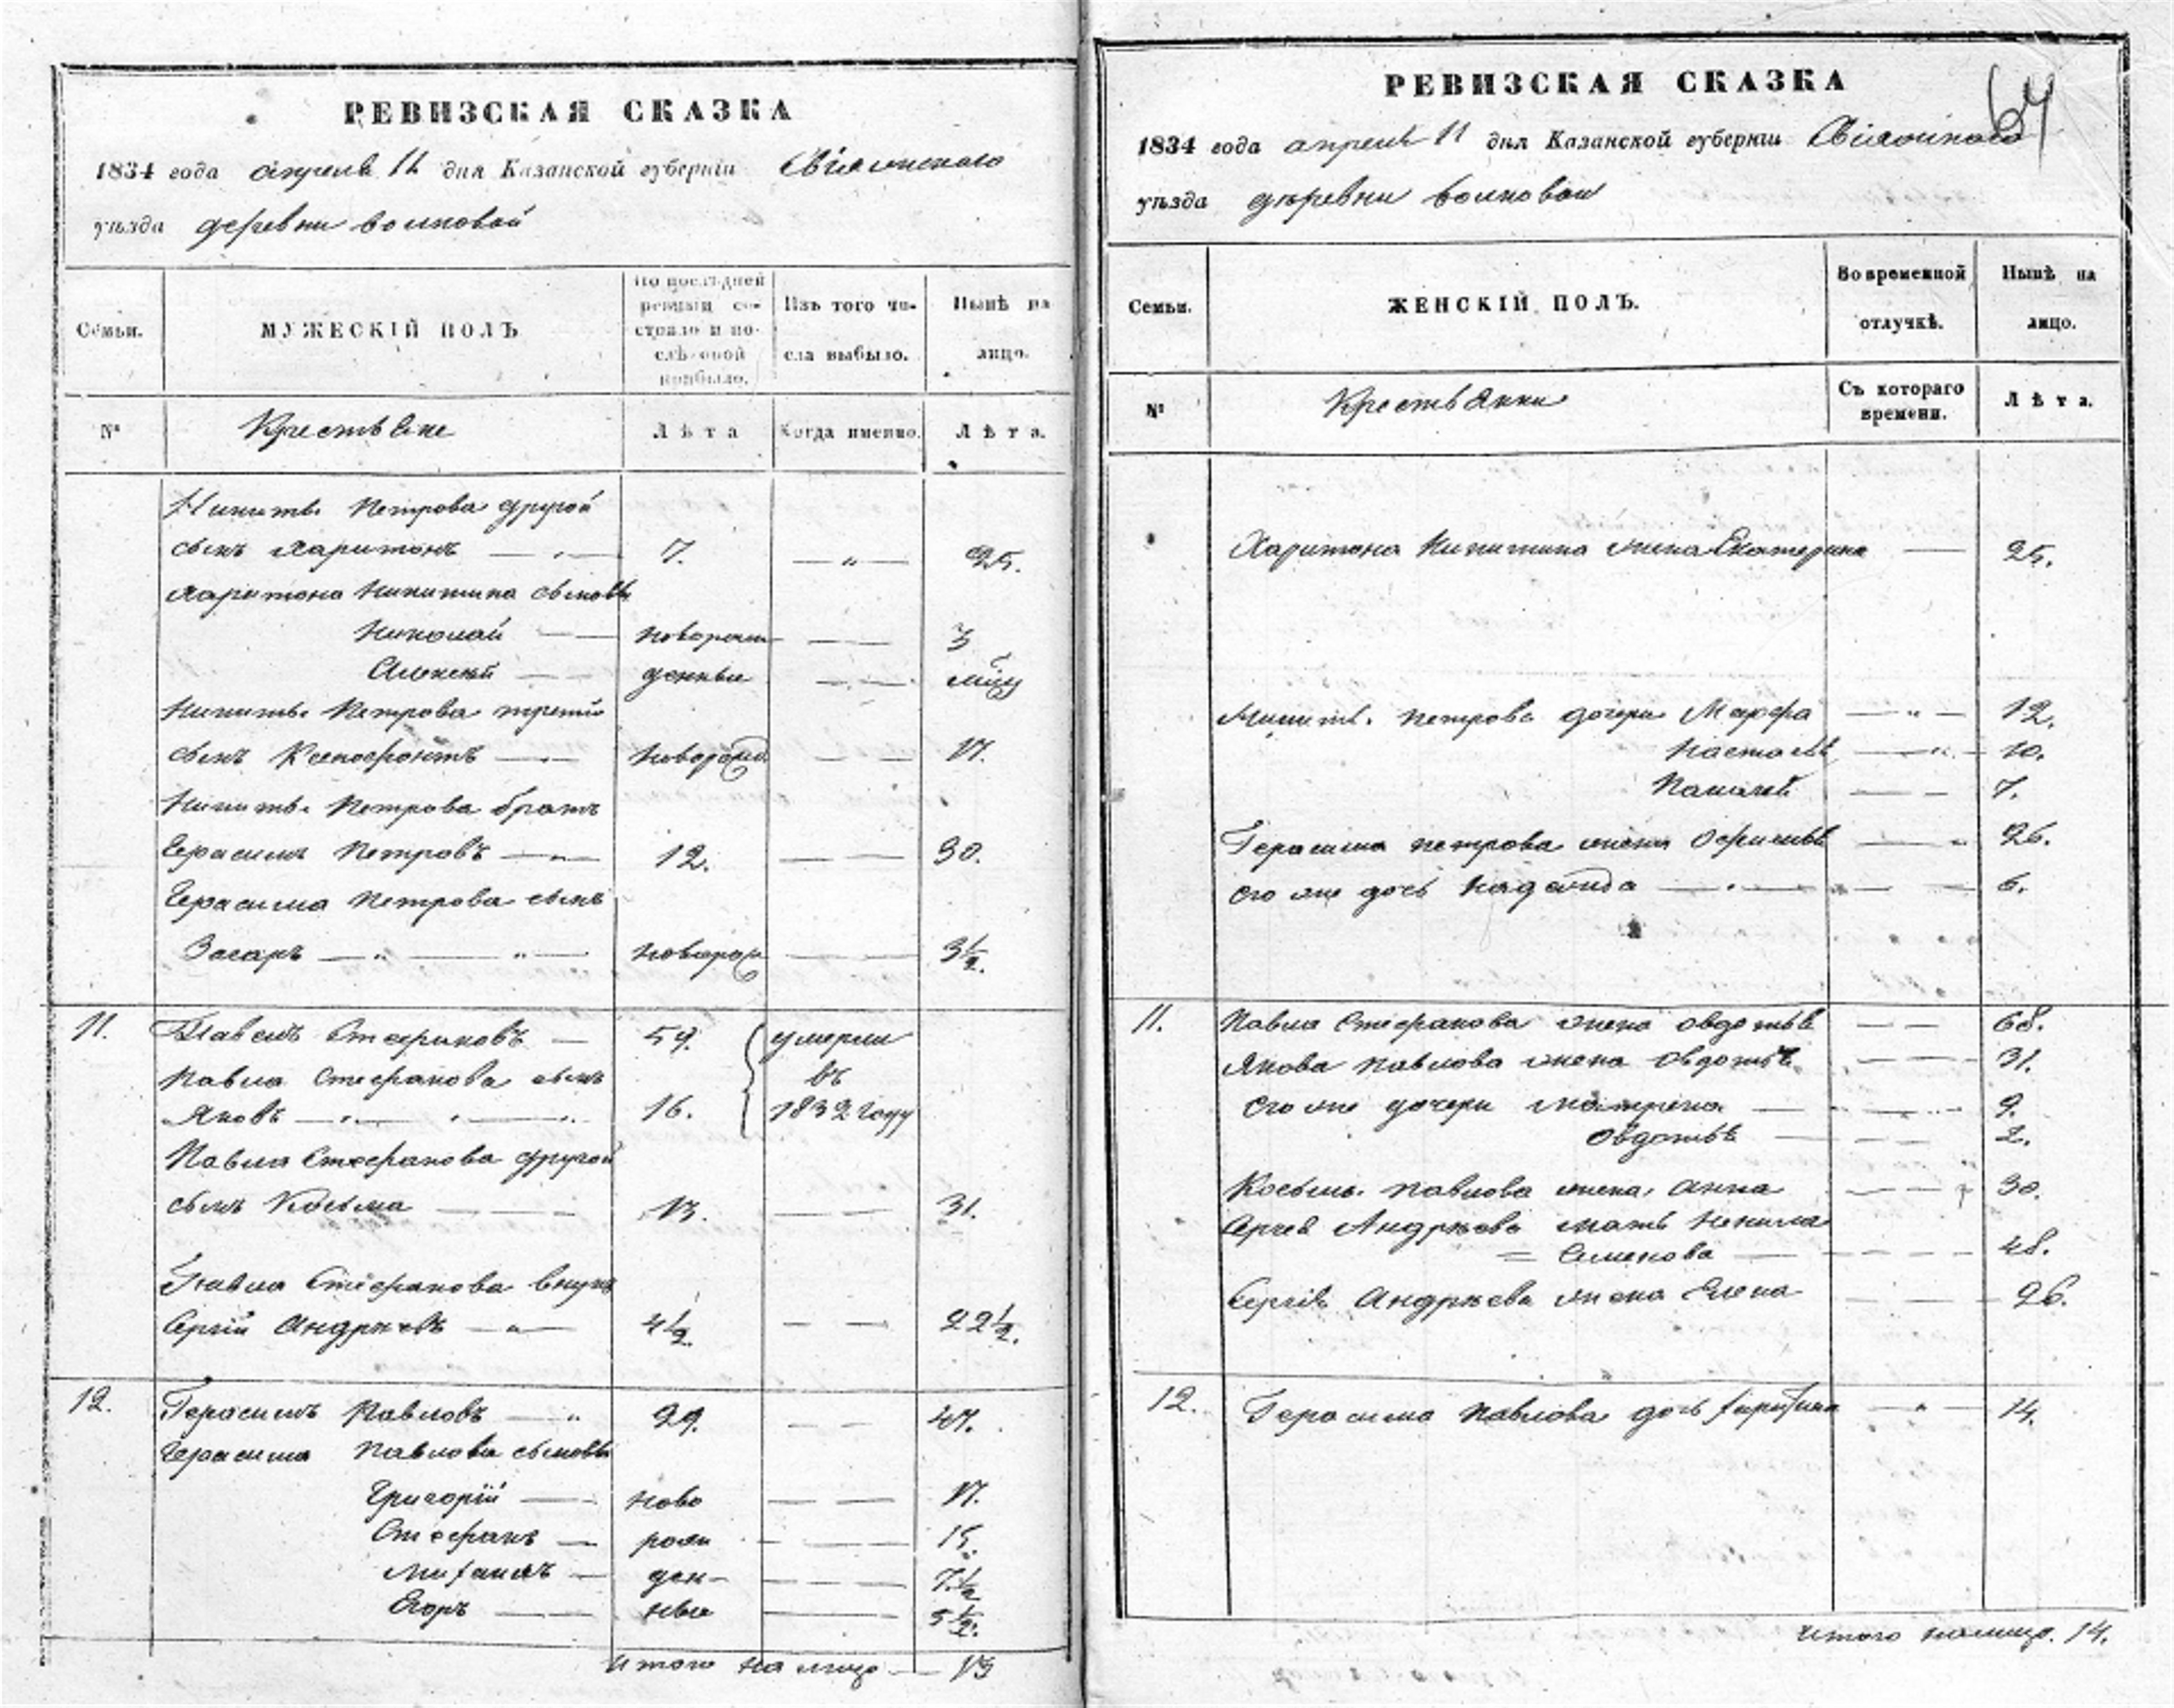 РЕВИЗСКАЯ СКАЗКА
1834 года апреля 11 дня Казанской губерніи Свіяжскаго
уѣзда деревни волковой
Семьи.
МУЖЕСКІЙ ПОЛЪ
По послѣдней ревизіи состояло и послѣ оной прибыло.
Изъ того числа выбыло.
Нынѣ на лицо.
№
Крестьяне
Лѣта
Когда именно.
Лѣта.
Никиты Петрова другой
сынъ Харитонъ — 7. — " — 25.
Харитона Никитина сыновья
Николай — новорож — — 3
Алексей — денные — — мцу
Никиты Петрова третій
сынъ Ксенофонтъ — новорожд — — 17.
Никиты Петрова братъ
Герасимъ Петровъ — 12. — — 30.
Герасима Петрова сынъ
Захаръ — " — " — новорож — — 3½.
11. Павелъ Стефановъ — 59. умерли
Павла Стефанова сынъ въ
Яковъ — 16. 1832 году
Павла Стефанова другой
сынъ Козьма — 13. — — 31.
Павла Стефанова внукъ
Сергій Андреевъ — " — 4½. — — 22½.
12. Герасимъ Павловъ — " 29. — — 47.
Герасима Павлова сыновья
Григорій — ново — — 17.
Стефанъ — рож — — 15.
Михаилъ — ден- — — 7½
Егоръ — ные — 5½.
Итого на лицо — 13
РЕВИЗСКАЯ СКАЗКА
64
1834 года апреля 11 дня Казанской губерніи Свіяжскаго
уѣзда деревни волковой
Семьи.
ЖЕНСКІЙ ПОЛЪ.
Во временной отлучкѣ.
Нынѣ на лицо.
№
Крестьянки
Съ котораго времени.
Лѣта.
Харитона Никитина жена Екатерина — 25.
Никиты Петрова дочери Марфа — " — 12.
Настасья — " — 10.
7.
Герасима Петрова жена Офимья — " 26.
его же дочь Надежда — — 6.
11. Павла Стефанова жена Овдотья — — 68.
Якова Павлова жена Овдотья — — 31.
его же дочери Матрена — — 9.
Овдотья — — — 2.
Козьмы Павлова жена Анна — — 30.
Сергея Андреева мать Ненила
= Семенова — — — 48.
Сергея Андреева жена Елена — — 26.
12. Герасима Павлова дочь — " — 14.
Итого налицо. 14.